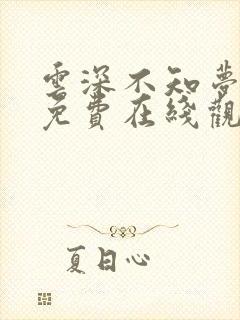 雲深不知夢
免費在綫觀
夏日心